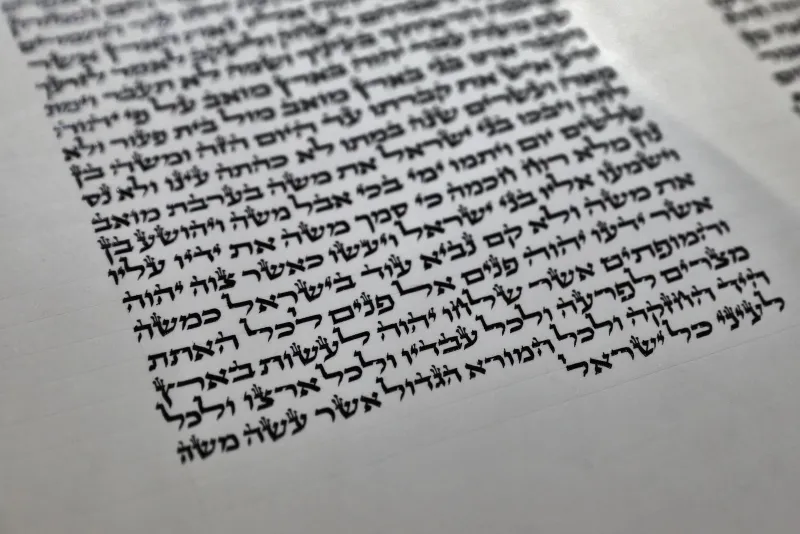 ליצחק וליעקב לאמר לזרעך
הראיתיך בעיניך ושמה לא תעבר וימת
שם משה עבד יהוה בארץ מואב על פי יהוה
ויקבר אתו בגי בארץ מואב מול בית פעור ולא
ידע איש את קברתו עד היום הזה ומשה בן
מאה ועשרים שנה במתו לא כהתה עינו ולא נס
לחה ויבכו בני ישראל את משה בערבת מואב
שלשים יום ויתמו ימי בכי אבל משה ויהושע בן
נון מלא רוח חכמה כי סמך משה את ידיו עליו
וישמעו אליו בני ישראל ויעשו כאשר צוה יהוה
את משה ולא קם נביא עוד בישראל כמשה
אשר ידעו יהוה פנים אל פנים לכל האתת
והמופתים אשר שלחו יהוה לעשות בארץ
מצרים לפרעה ולכל עבדיו ולכל ארצו ולכל
היד החזקה ולכל המורא הגדול אשר עשה משה
לעיני כל ישראל